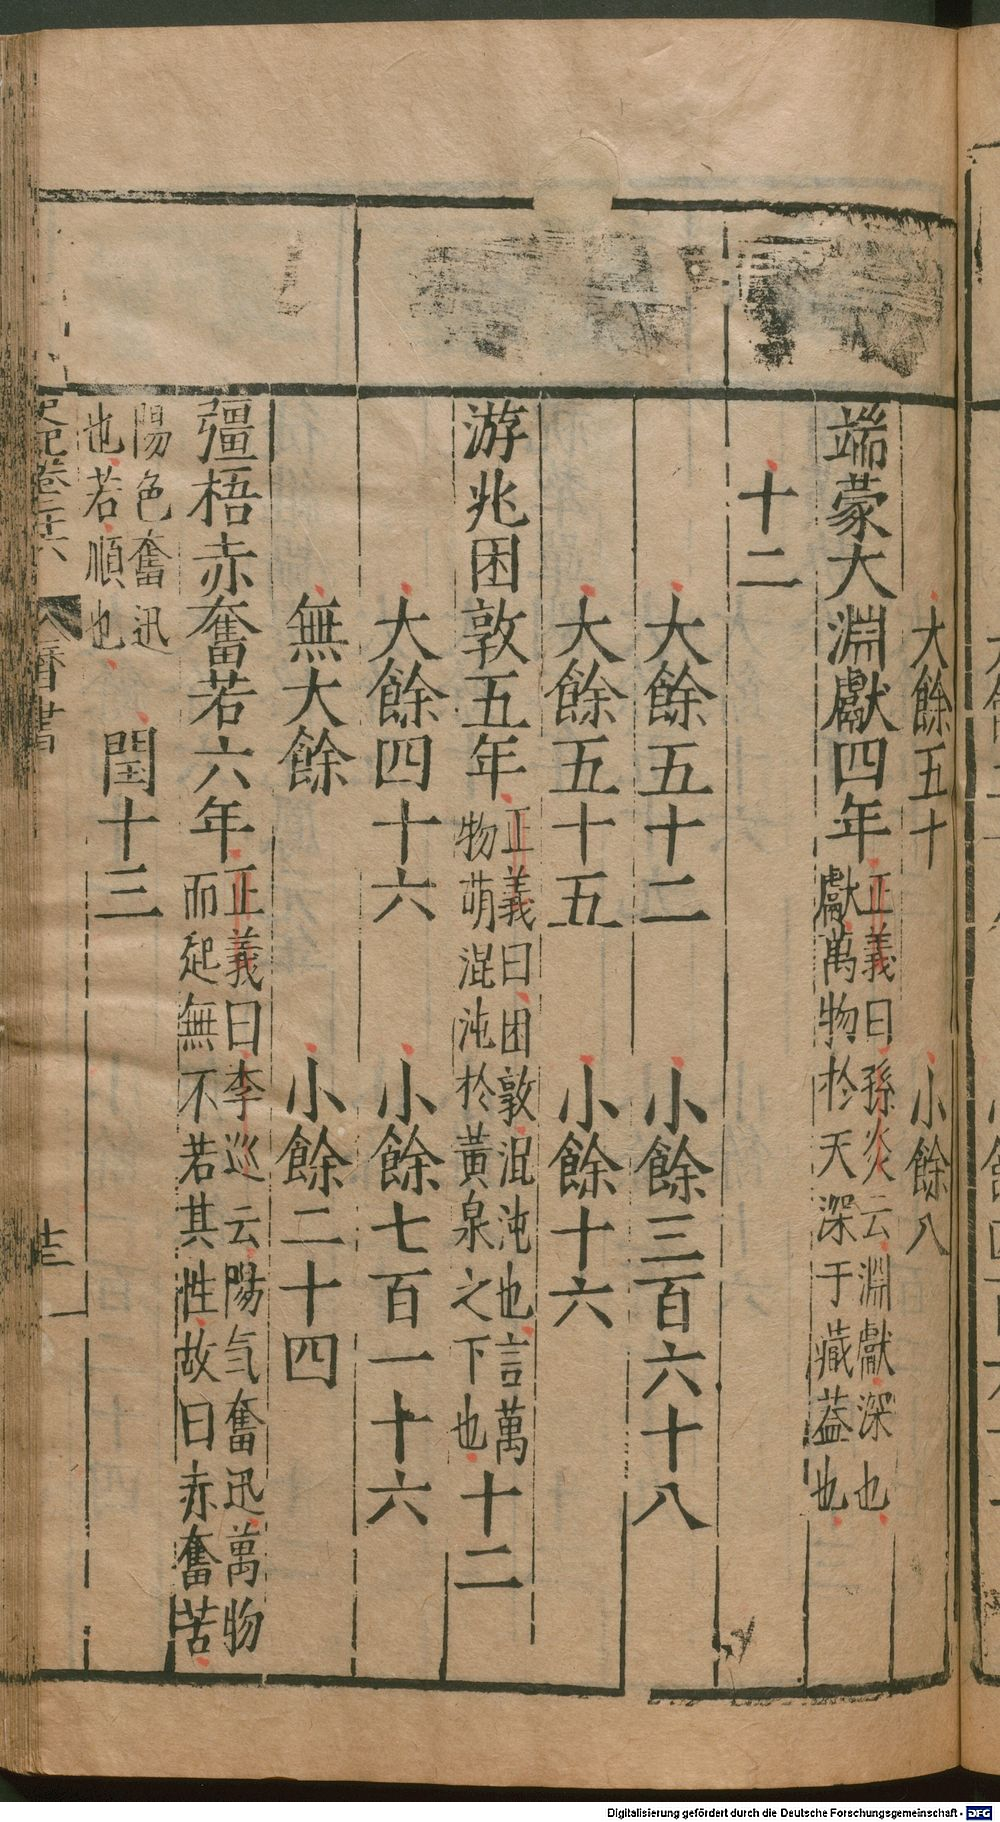 大餘五十　小餘八
端蒙大淵獻四年正義曰孫炎云淵獻深也獻萬物於天深于藏葢也
十二
大餘五十二　小餘三百六十八
大餘五十五　小餘十六
游兆困敦五年正義曰困敦混沌也言萬物萌混沌於黃泉之下也十二
大餘四十六　小餘七百一十六
無大餘　小餘二十四
彊梧赤奮若六年正義曰李巡云陽気奮迅萬物而起無不若其性故曰赤奮苦
陽色奮迅也若順也　閏十三
史記卷二十六　曆書
Digitalisierung gefördert durch die Deutsche Forschungsgemeinschaft - DFG